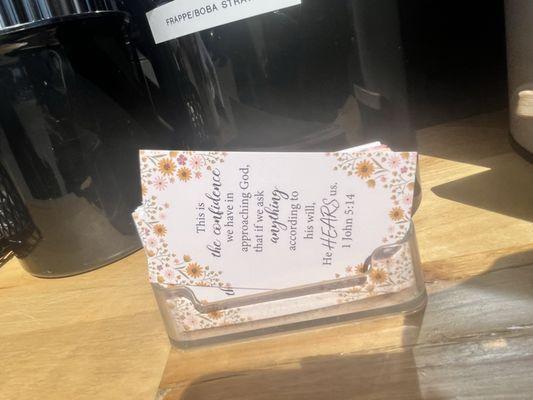 FRAPPE/BOBA STRA
This is
the confidence
we have in
approaching God,
that if we ask
anything
according to
his will,
He HEARS us.
1 John 5:14